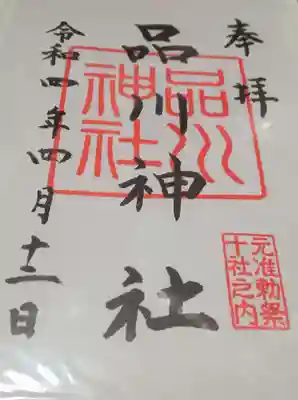 奉拝
品川神社
令和四年四月十二日
品川
神社
元准勅祭
十社之内